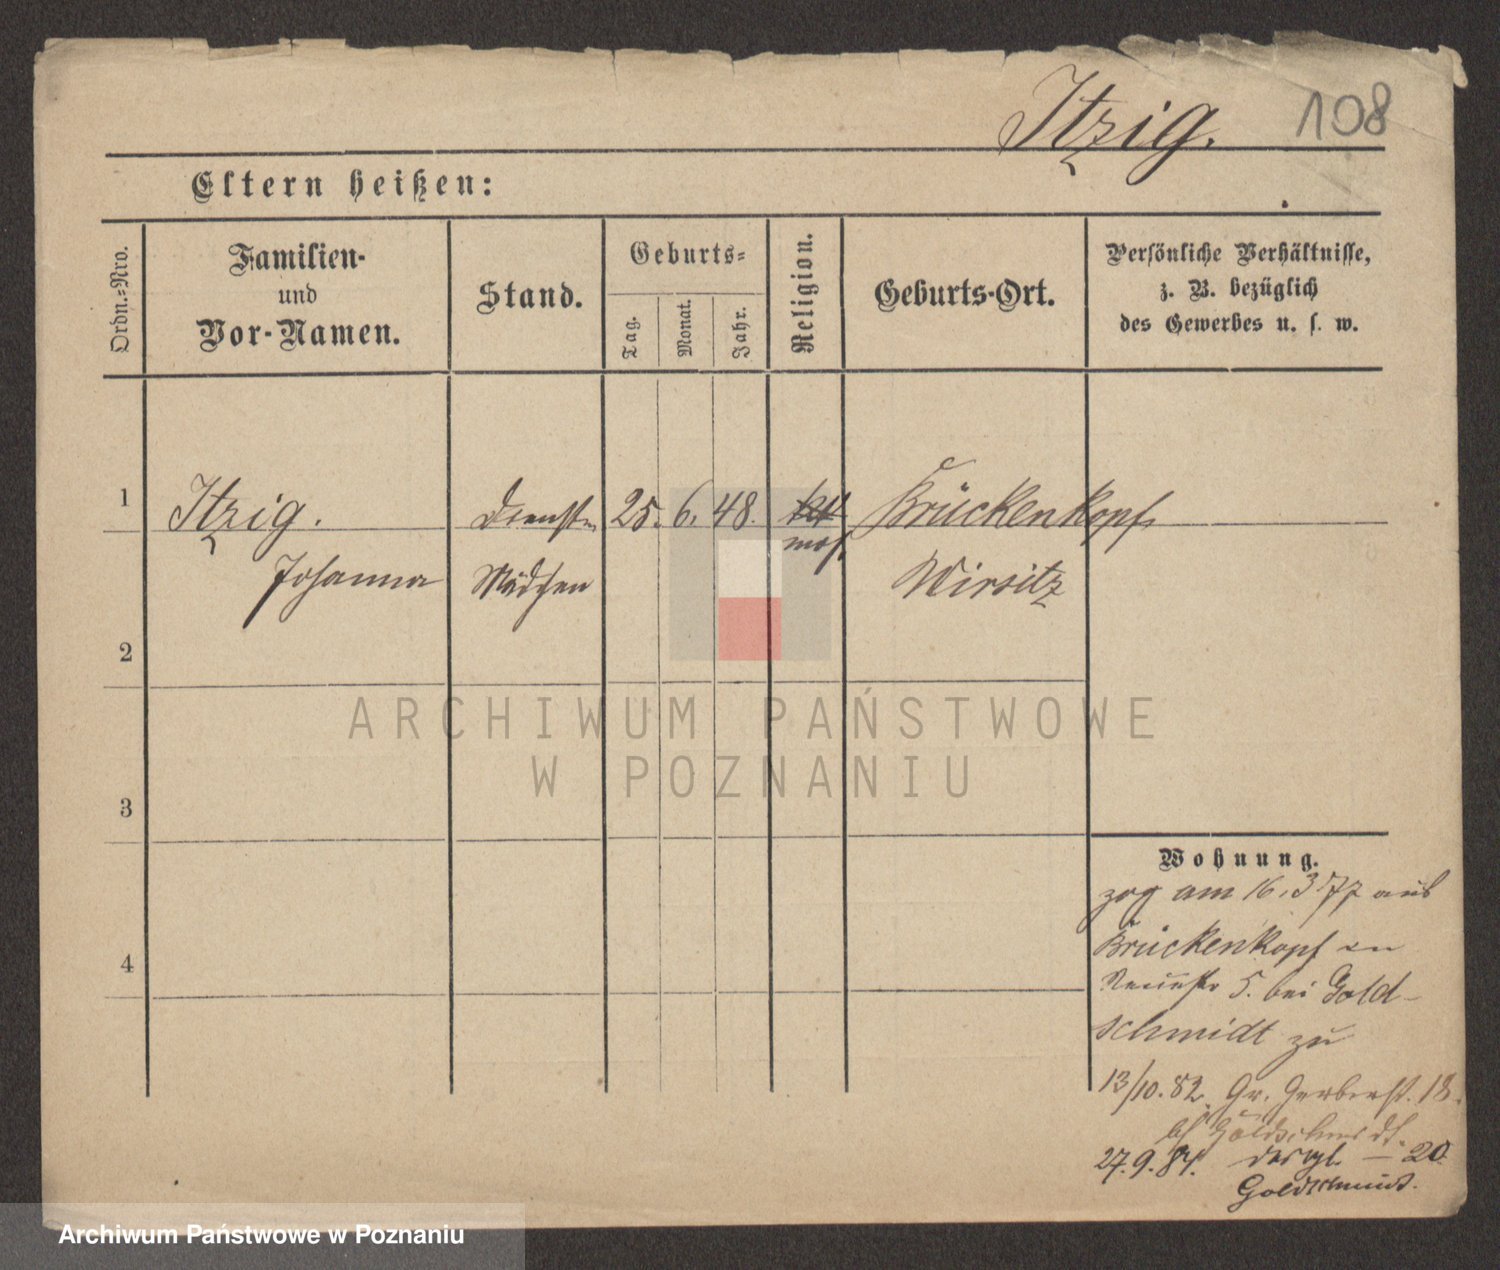 Itzig. 108
Eltern heißen:
Ordn.=Nro.
Familien-
und
Vor-Namen.
Stand.
Geburts=
Tag.
Monat.
Jahr.
Religion.
Geburts-Ort.
Persönliche Verhältnisse,
z. B. bezüglich
des Gewerbes u. s. w.
1 Itzig. Dienst- 25. 6. 48. Brückenkopf
mos.
Johanna Mädchen Wirsitz
2
3
4
Wohnung.
zog am 16.3 77 aus
Brückenkopf
Neuestr 5. bei Gold-
schmidt zu
13/10.82. Gr. Gerberst. 18.
bf Goldschmidt.
27.9.84. desgl. — 20.
Goldschmidt.
ARCHIWUM PAŃSTWOWE
W POZNANIU
Archiwum Państwowe w Poznaniu